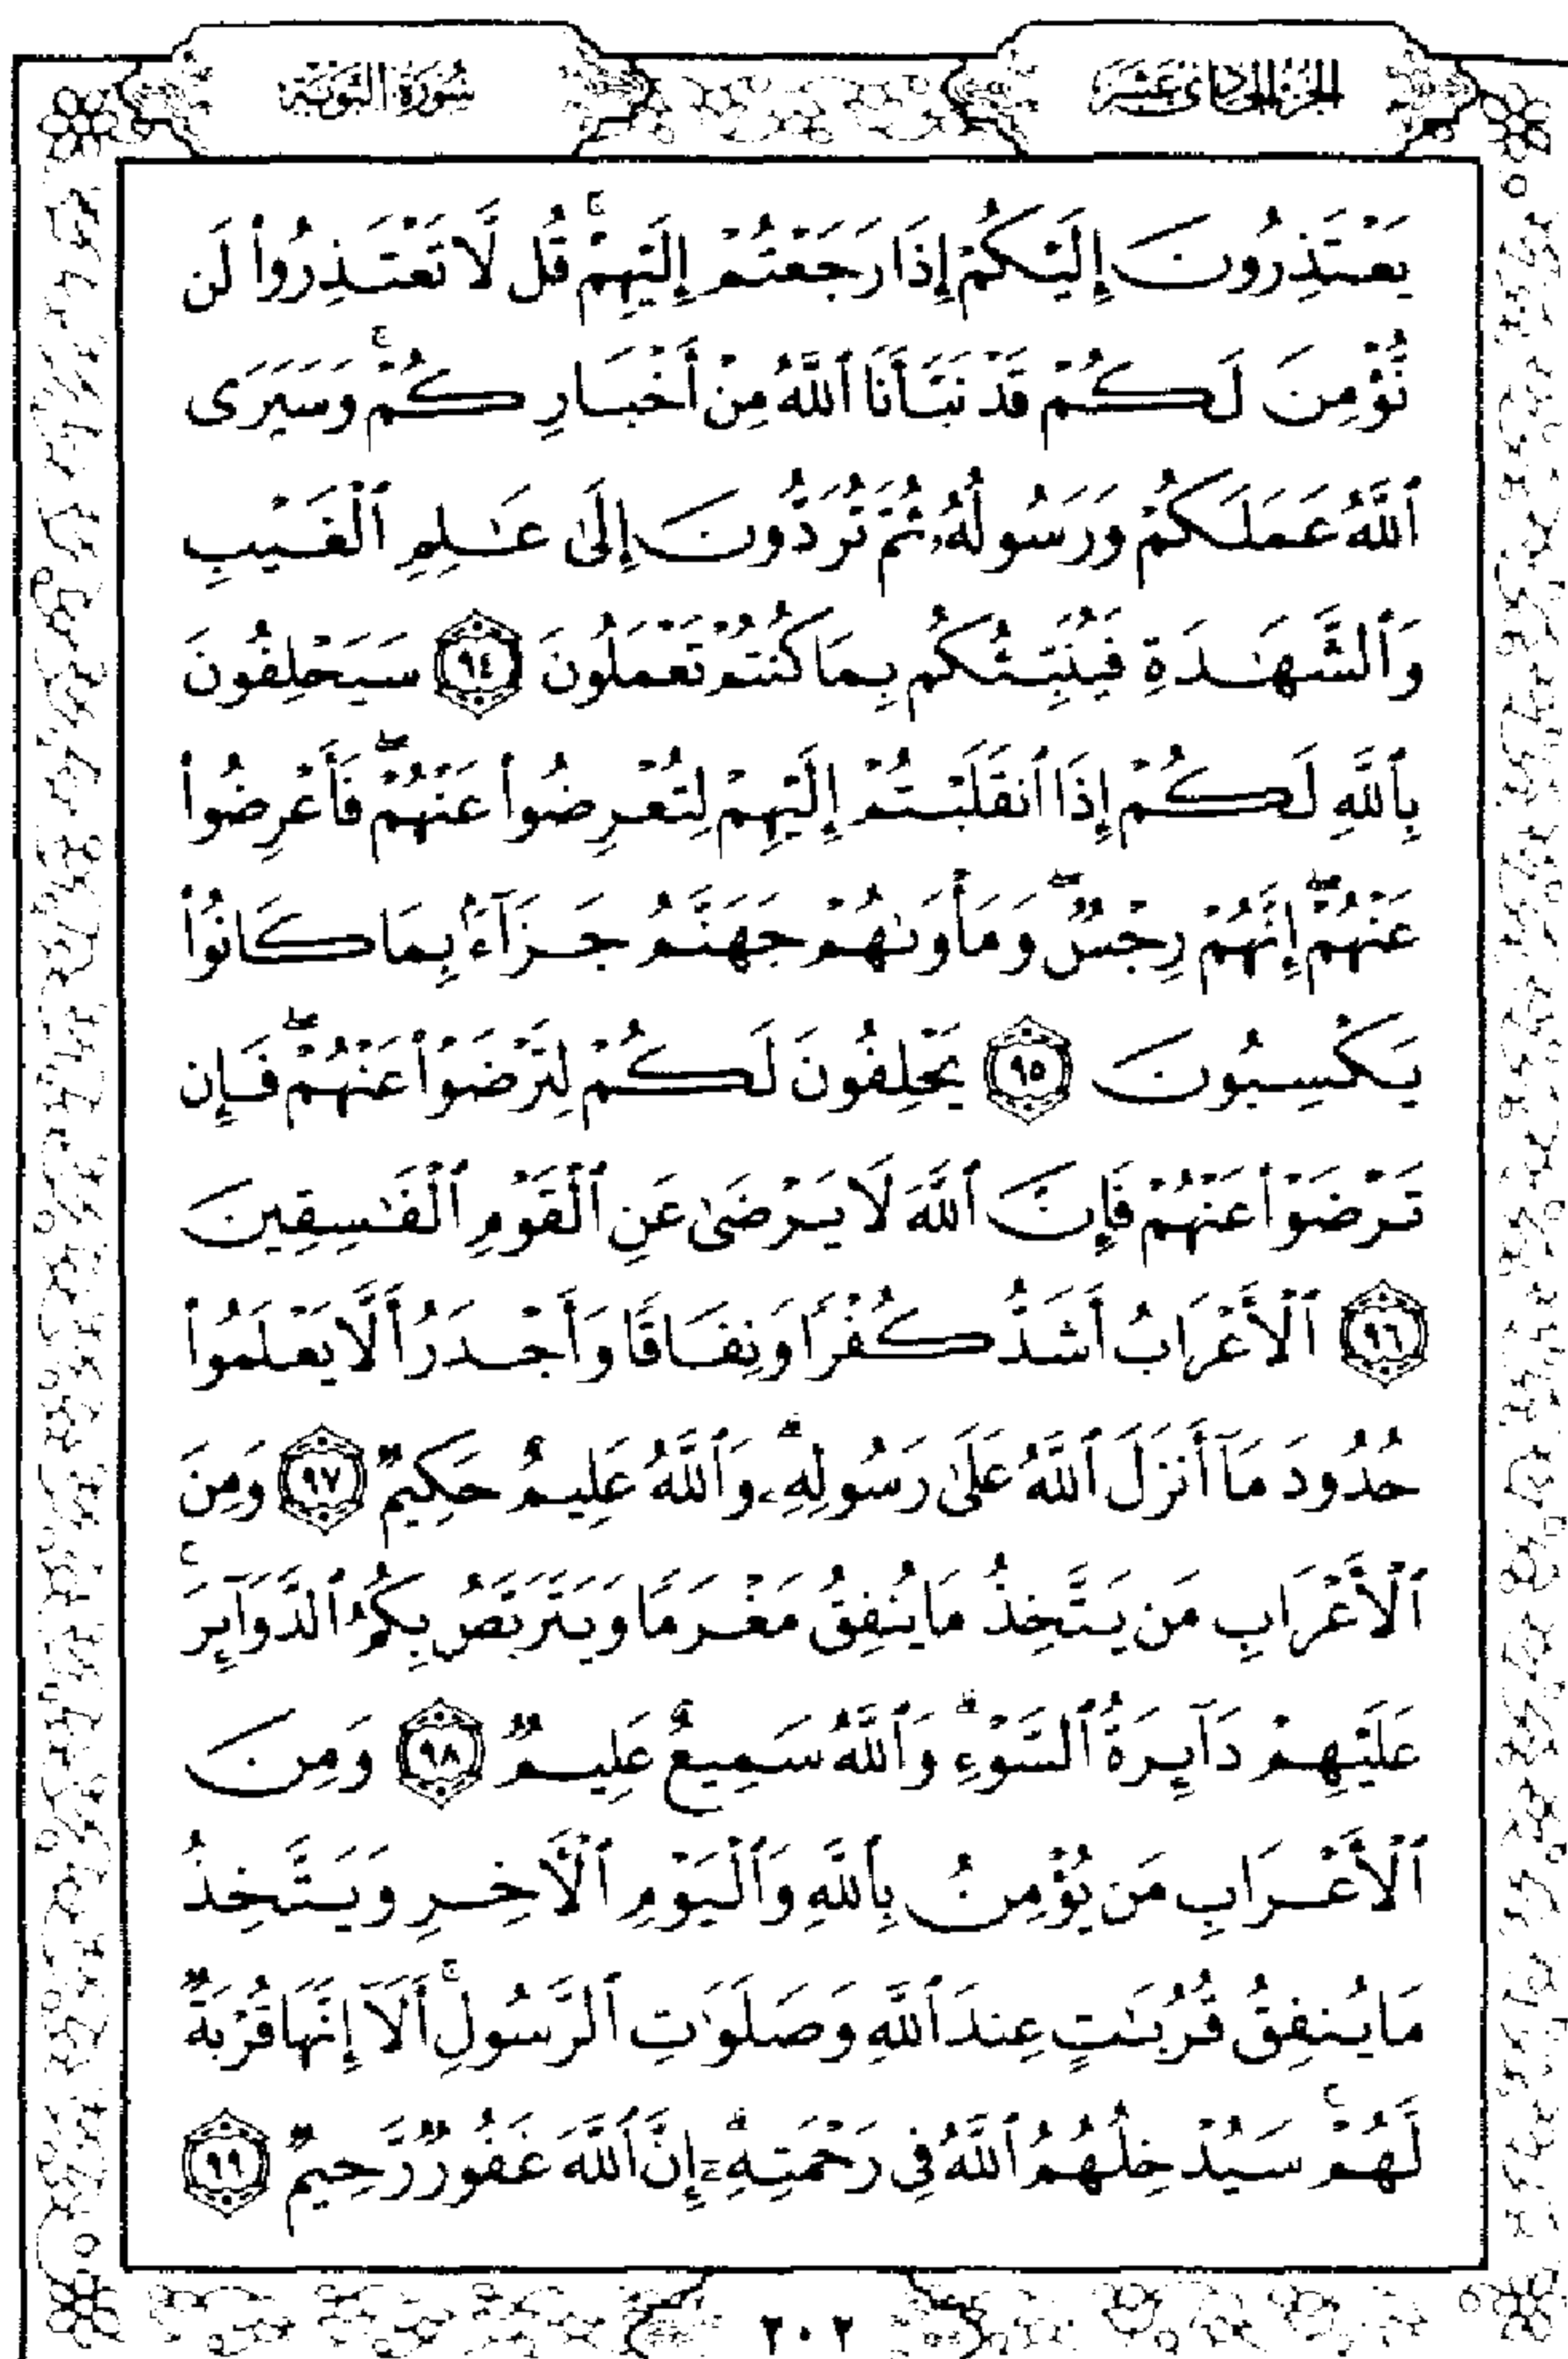 الجزء الحادي عشر
سورة التوبة
يَعۡتَذِرُونَ إِلَيۡكُمۡ إِذَا رَجَعۡتُمۡ إِلَيۡهِمۡۚ قُل لَّا تَعۡتَذِرُواْ لَن
نُّؤۡمِنَ لَكُمۡ قَدۡ نَبَّأَنَا ٱللَّهُ مِنۡ أَخۡبَارِكُمۡۚ وَسَيَرَى
ٱللَّهُ عَمَلَكُمۡ وَرَسُولُهُۥ ثُمَّ تُرَدُّونَ إِلَىٰ عَٰلِمِ ٱلۡغَيۡبِ
وَٱلشَّهَٰدَةِ فَيُنَبِّئُكُم بِمَا كُنتُمۡ تَعۡمَلُونَ ٩٤ سَيَحۡلِفُونَ
بِٱللَّهِ لَكُمۡ إِذَا ٱنقَلَبۡتُمۡ إِلَيۡهِمۡ لِتُعۡرِضُواْ عَنۡهُمۡۖ فَأَعۡرِضُواْ
عَنۡهُمۡۖ إِنَّهُمۡ رِجۡسٞۖ وَمَأۡوَىٰهُمۡ جَهَنَّمُ جَزَآءَۢ بِمَا كَانُواْ
يَكۡسِبُونَ ٩٥ يَحۡلِفُونَ لَكُمۡ لِتَرۡضَوۡاْ عَنۡهُمۡۖ فَإِن
تَرۡضَوۡاْ عَنۡهُمۡ فَإِنَّ ٱللَّهَ لَا يَرۡضَىٰ عَنِ ٱلۡقَوۡمِ ٱلۡفَٰسِقِينَ
٩٦ ٱلۡأَعۡرَابُ أَشَدُّ كُفۡرٗا وَنِفَاقٗا وَأَجۡدَرُ أَلَّا يَعۡلَمُواْ
حُدُودَ مَآ أَنزَلَ ٱللَّهُ عَلَىٰ رَسُولِهِۦۗ وَٱللَّهُ عَلِيمٌ حَكِيمٞ ٩٧ وَمِنَ
ٱلۡأَعۡرَابِ مَن يَتَّخِذُ مَا يُنفِقُ مَغۡرَمٗا وَيَتَرَبَّصُ بِكُمُ ٱلدَّوَآئِرَۚ
عَلَيۡهِمۡ دَآئِرَةُ ٱلسَّوۡءِۗ وَٱللَّهُ سَمِيعٌ عَلِيمٞ ٩٨ وَمِنَ
ٱلۡأَعۡرَابِ مَن يُؤۡمِنُ بِٱللَّهِ وَٱلۡيَوۡمِ ٱلۡأٓخِرِ وَيَتَّخِذُ
مَا يُنفِقُ قُرُبَٰتٍ عِندَ ٱللَّهِ وَصَلَوَٰتِ ٱلرَّسُولِۚ أَلَآ إِنَّهَا قُرۡبَةٞ
لَّهُمۡۚ سَيُدۡخِلُهُمُ ٱللَّهُ فِي رَحۡمَتِهِۦٓۗ إِنَّ ٱللَّهَ غَفُورٞ رَّحِيمٞ ٩٩
٢٠٢